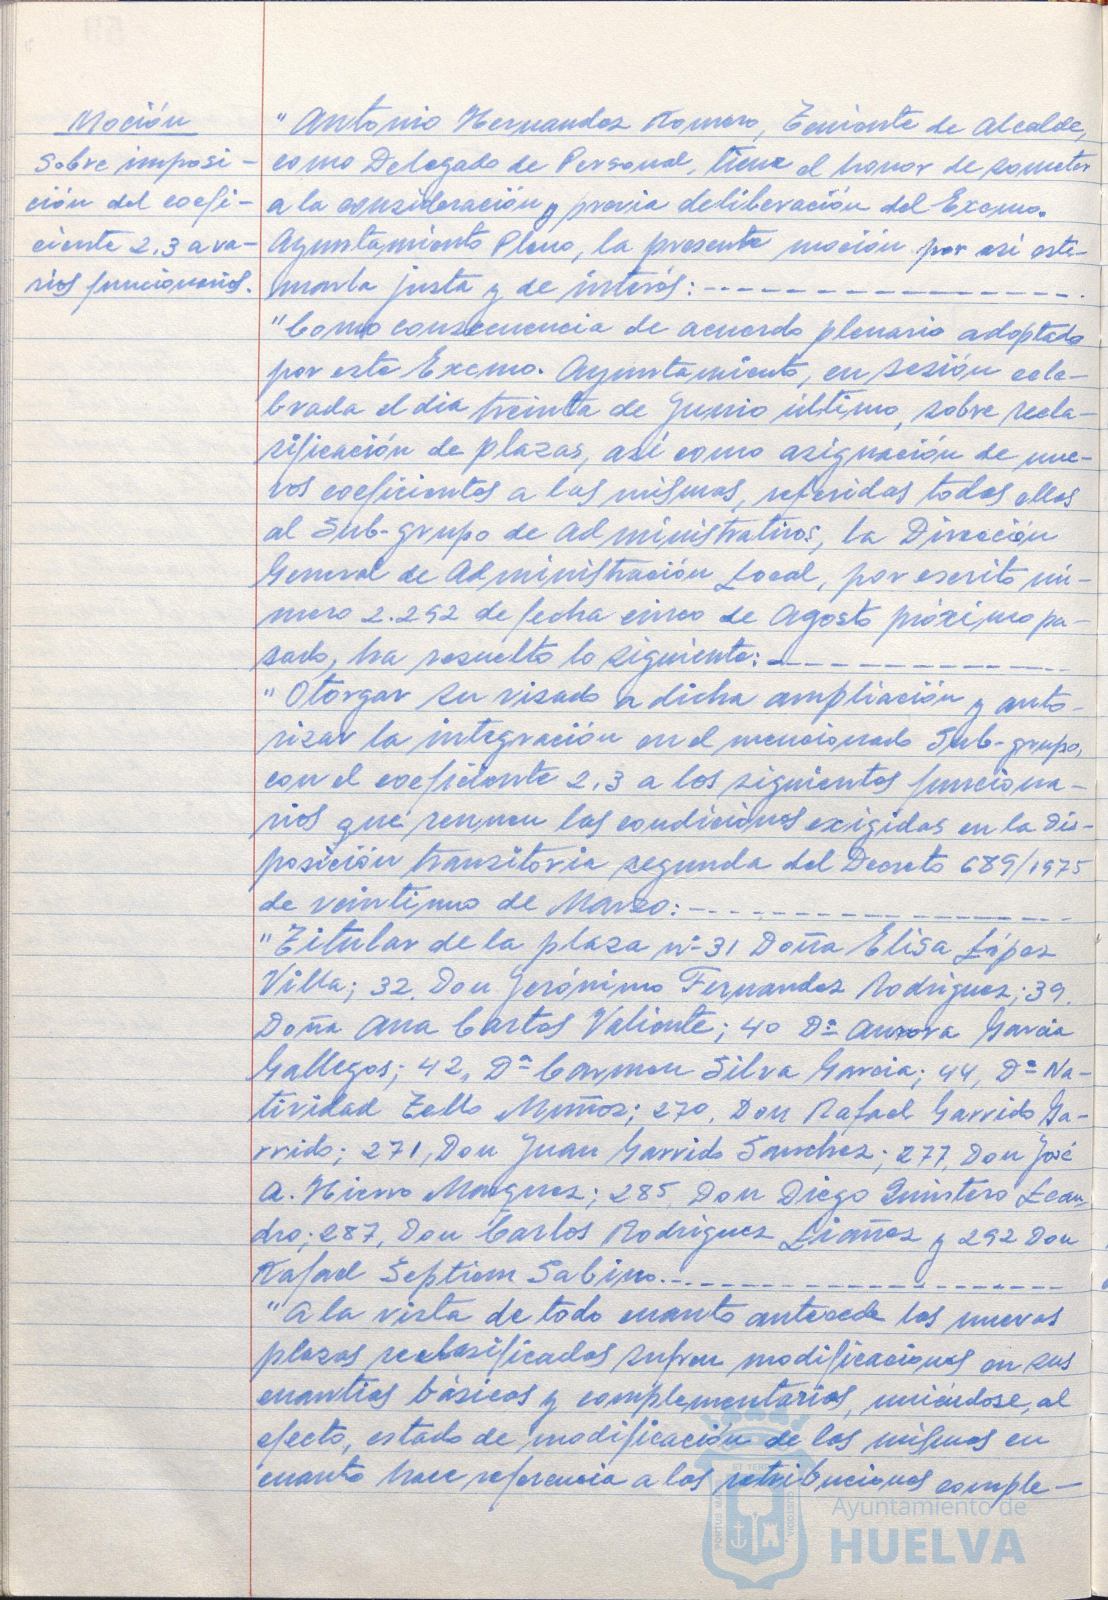 Moción
sobre imposi-
ción del coefi-
ciente 2,3 a va-
rios funcionarios.
"Antonio Hernandez Romero, Teniente de Alcalde,
como Delegado de Personal, tiene el honor de someter
a la consideración y previa deliberación del Excmo.
Ayuntamiento Pleno, la presente moción por así esti-
marla justa y de interés:
"Como consecuencia de acuerdo plenario adoptado
por este Excmo. Ayuntamiento, en sesión cele-
brada el dia treinta de Junio último, sobre recla-
sificación de plazas, así como asignación de nue-
vos coeficientes a las mismas, referidas todas ellas
al Sub-grupo de Administrativos, la Dirección
General de Administración Local, por escrito nú-
mero 2.292 de fecha cinco de Agosto próximo pa-
sado, ha resuelto lo siguiente:
"Otorgar su visado a dicha ampliación y auto-
rizar la integración en el mencionado Sub-grupo,
con el coeficiente 2,3 a los siguientes funciona-
rios que reunen las condiciones exigidas en la Dis-
posición transitoria segunda del Decreto 689/1975
de veintiuno de Marzo:
"Titular de la plaza nº 31 Doña Elisa López
Villa; 32, Don Jerónimo Fernandez Rodriguez; 39,
Doña Ana Cartes Valiente; 40 Dª Aurora Garcia
Gallegos; 42, Dª Carmen Silva Garcia; 44, Dª Na-
tividad Tello Muñoz; 270, Don Rafael Garrido Ga-
rrido; 271, Don Juan Garrido Sanchez; 277, Don José
A. Hierro Marquez; 285, Don Diego Quintero Lean-
dro; 287, Don Carlos Rodriguez Liañez y 292 Don
Rafael Septiem Sabino.
"A la vista de todo cuanto antecede las nuevas
plazas reclasificadas sufren modificaciones en sus
cuantias básicas y complementarias, uniéndose, al
efecto, estado de modificación de las mismas en
cuanto hace referencia a las retribuciones comple-
Ayuntamiento de
HUELVA